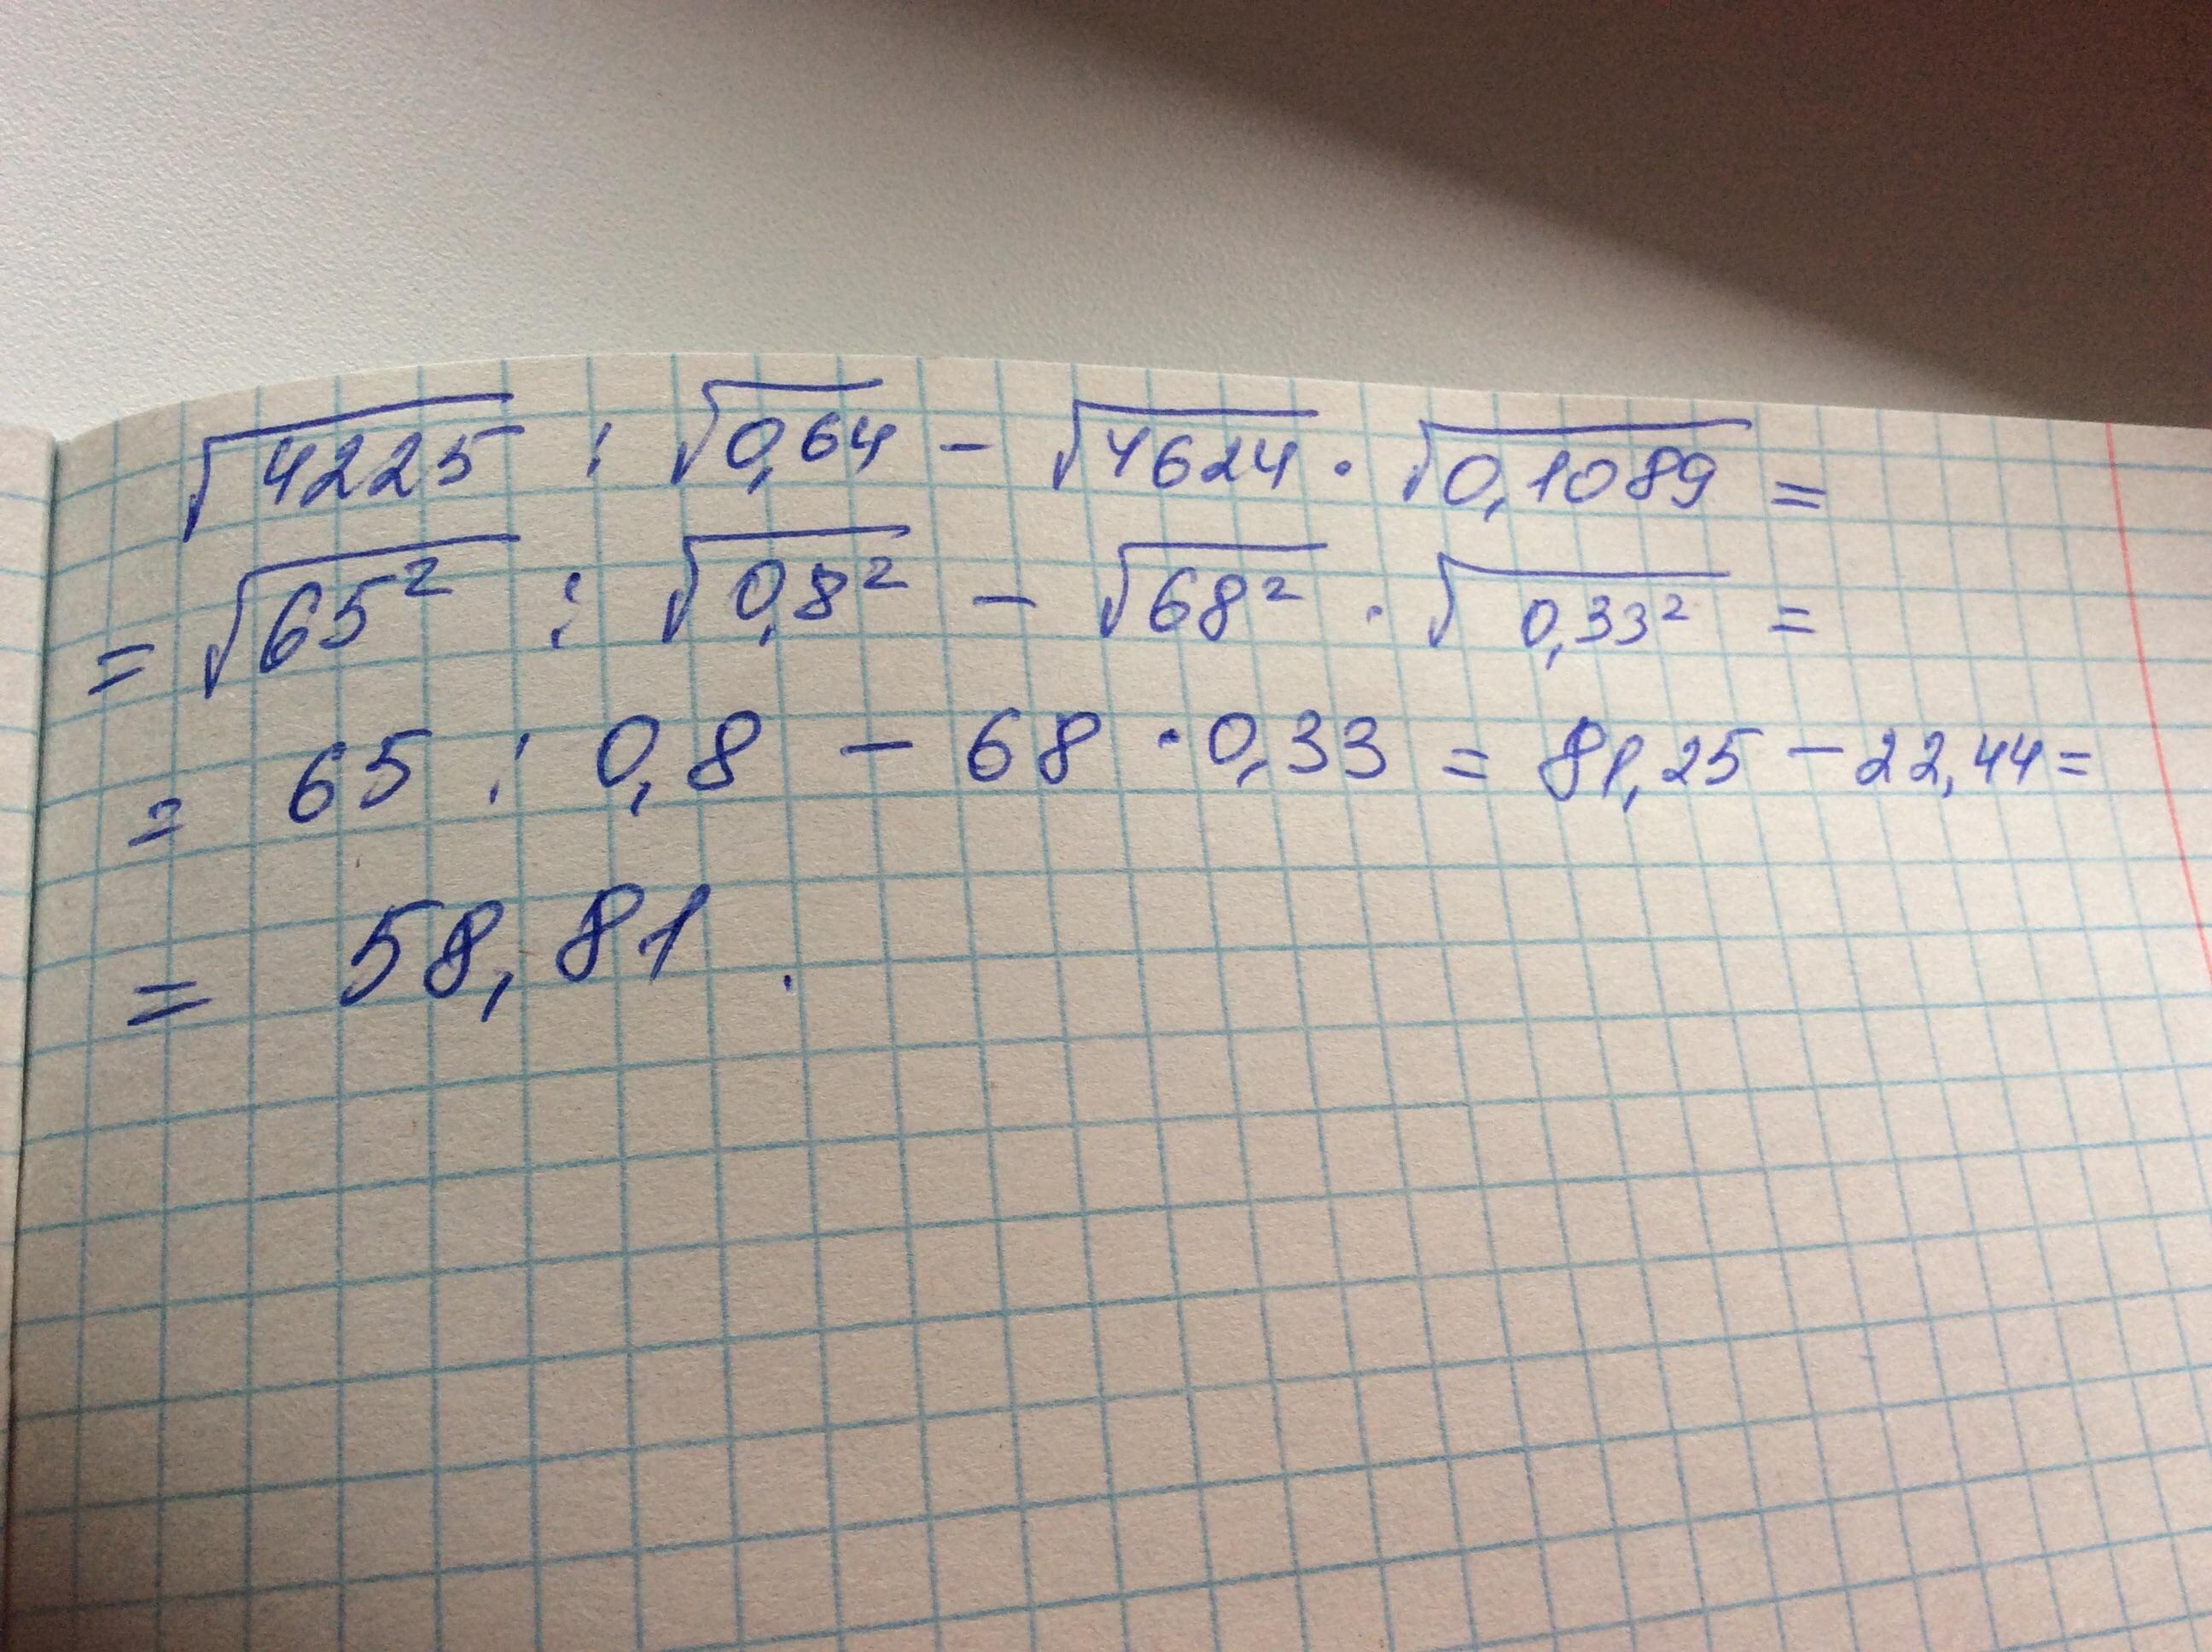 √4225 : √0,64 - √4624 · √0,1089 =
= √65² : √0,8² - √68² · √0,33² =
= 65 : 0,8 - 68 · 0,33 = 81,25 - 22,44 =
= 58,81.